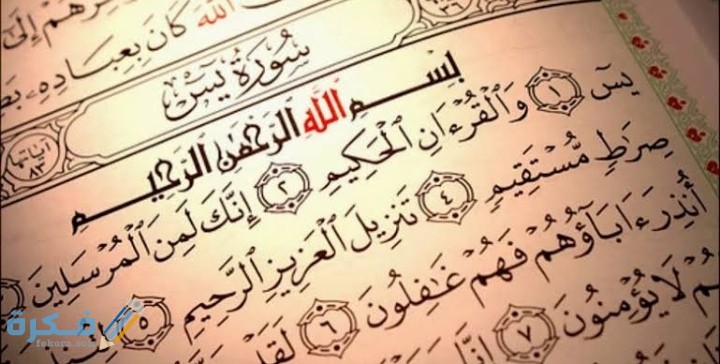 إِلَىٰ
ٱللَّهَ كَانَ بِعِبَادِهِۦ
٣٦
سُورَةُ يسٓ
آياتها ٨٣
بِسْمِ ٱللَّهِ ٱلرَّحْمَٰنِ ٱلرَّحِيمِ
يسٓ ١ وَٱلْقُرْءَانِ ٱلْحَكِيمِ ٢ إِنَّكَ لَمِنَ ٱلْمُرْسَلِينَ
صِرَٰطٍ مُّسْتَقِيمٍ ٤ تَنزِيلَ ٱلْعَزِيزِ ٱلرَّحِيمِ ٥
أُنذِرَ ءَابَآؤُهُمْ فَهُمْ غَٰفِلُونَ ٦ لَقَدْ
لَا يُؤْمِنُونَ ٧ إِنَّا
فكرة